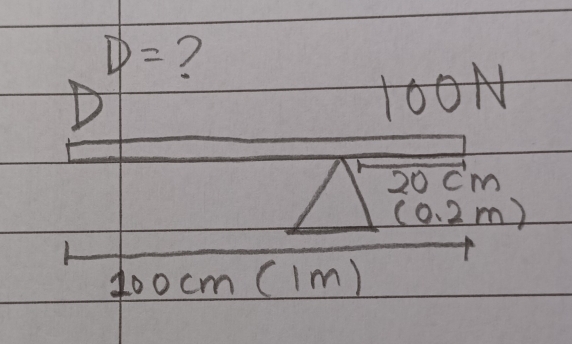 D = ?
D
100N
20 cm
(0.2m)
100cm (1m)